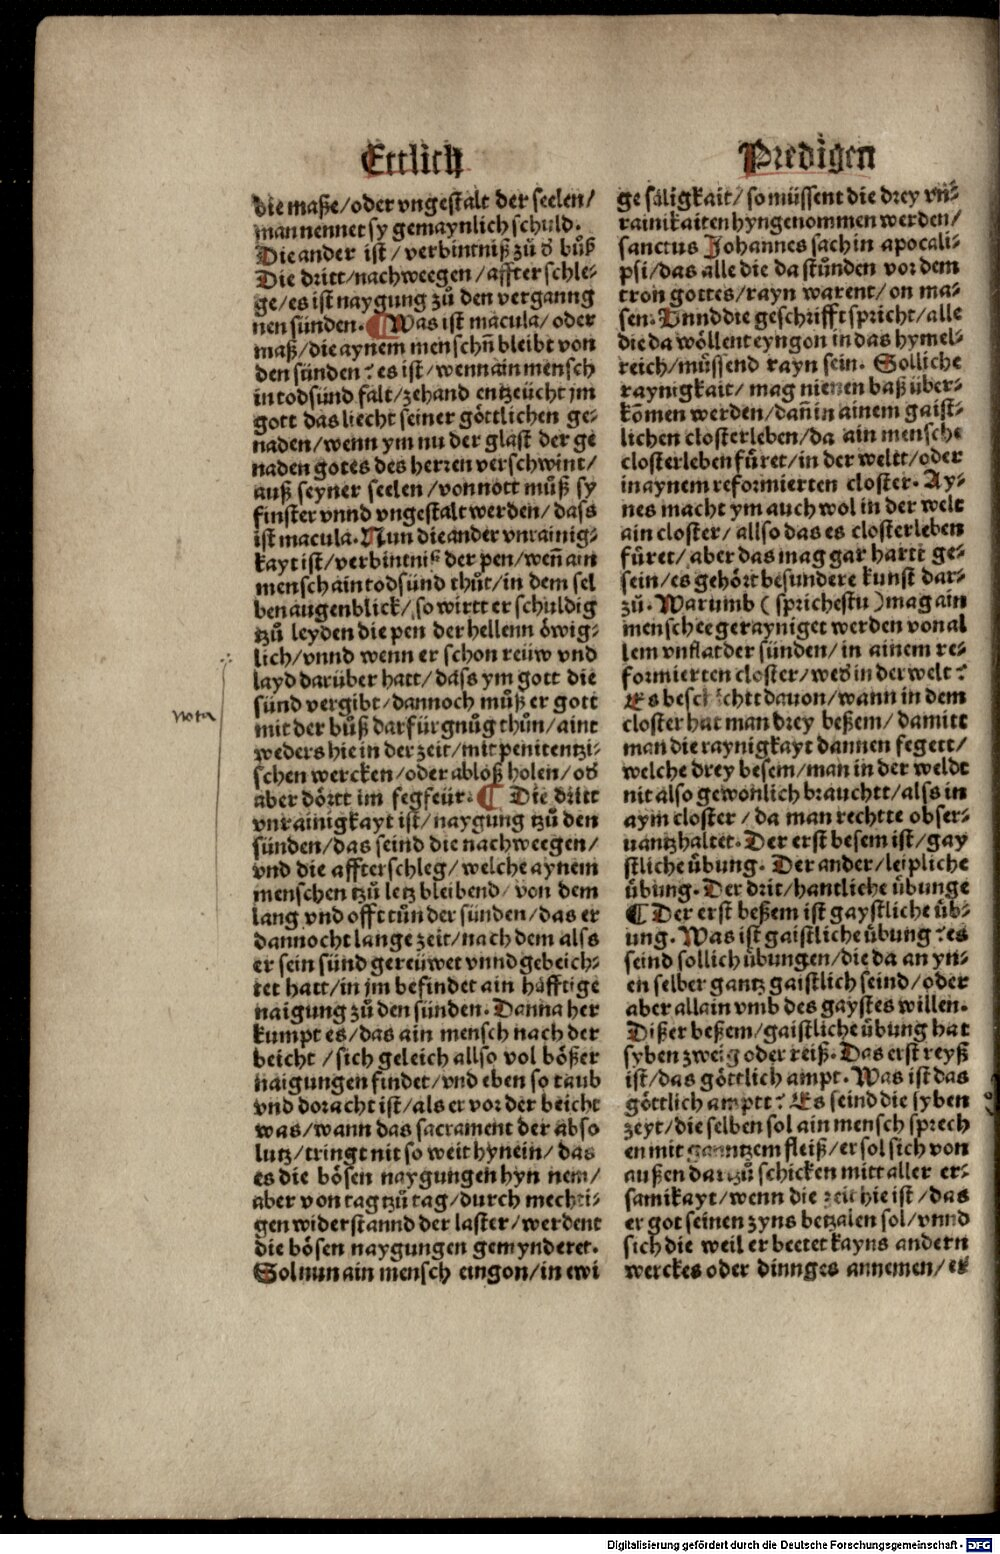 Ettlich
Predigen
die maße/oder vngestalt der seelen/
man nennet sy gemaynlich schuld.
Die ander ist/verbintniß zů d̄ bůß
Die dritt/nachweegen/affter schle⸗
ge/es ist naygung zů den verganng
nen sünden. ¶ Was ist macula/oder
maß/die aynem menschn̄ bleibt von
den sünden? es ist/wenn ain mensch
in todsünd falt/zehand entzeücht jm
gott das liecht seiner göttlichen ge⸗
naden/wenn ym nu der glast der ge
naden gotes des herren verschwint/
auß seyner seelen/von nott můß sy
finster vnnd vngestalt werden/dass
ist macula. Nun die ander vnrainig⸗
kayt ist/verbintniß der pen/wen̄ ain
mensch ain todsünd thůt/in dem sel
ben augenblick/so wirtt er schuldig
tzů leyden die pen der hellenn öwig⸗
lich/vnnd wenn er schon reüw vnd
layd darüber hatt/dass ym gott die
sünd vergibt/dannoch můß er gott
nota
mit der bůß darfür gnůg thůn/aint
weders hie in der zeit/mit penitentzi⸗
schen wercken/oder ablöß holen/od̄
aber dörtt im fegfeür. ¶ Die dritt
vnrainigkayt ist/naygung tzů den
sünden/das seind die nachweegen/
vnd die affterschleg/welche aynem
menschen tzů letz bleibend/von dem
lang vnd offt tůn der sünden/das er
dannocht lange zeit/nach dem alss
er sein sünd gereüwet vnnd gebeich⸗
tet hatt/in jm befindet ain häfftige
naigung zů den sünden. Danna her
kumpt es/das ain mensch nach der
beicht/sich geleich allso vol bößer
naigungen findet/vnd eben so taub
vnd doracht ist/als er vor der beicht
was/wann das sacrament der abso
lutz/tringt nit so weit hynein/das
es die bösen naygungen hyn nem/
aber von tag tzů tag/durch mechti⸗
gen widerstannd der laster/werdent
die bösen naygungen gemynderet.
Sol nun ain mensch eingon/in ewi
ge säligkait/so müssent die drey vn⸗
rainikaiten hyngenommen werden/
sanctus Johannes sach in apocali⸗
psi/das alle die da stůnden vor dem
tron gottes/rayn warent/on ma⸗
sen. Vnnd die geschrifft spricht/alle
die da wöllent eyngon in das hymel⸗
reich/müssend rayn sein. Solliche
raynigkait/mag nienen baß über⸗
kōmen werden/dan̄ in ainem gaist⸗
lichen closterleben/da ain mensche
closterleben füret/in der weltt/oder
in aynem reformierten closter. Ay⸗
nes macht ym auch wol in der welt
ain closter/allso das es closterleben
füret/aber das mag gar hartt ge⸗
sein/es gehört besundere kunst dar⸗
zů. Warumb (sprichestu) mag ain
mensch ee gerayniget werden von al
lem vnflat der sünden/in ainem re⸗
formierten closter/wed̄ in der welt?
Es beschichtt dauon/wann in dem
closter hat man drey beßem/damitt
man die raynigkayt dannen fegett/
welche drey besem/man in der weldt
nit also gewonlich brauchtt/alss in
aym closter/da man rechtte obser⸗
uantz haltet. Der erst besem ist/gay
stliche übung. Der ander/leipliche
übung. Der drit/hantliche übunge
¶ Der erst beßem ist gaystliche üb⸗
ung. Was ist gaistliche übung? es
seind sollich übungen/die da an yn⸗
en selber gantz gaistlich seind/oder
aber allain vmb des gaystes willen.
Dißer beßem/gaistliche übung hat
syben zweig oder reiß. Das erst reyß
ist/das göttlich ampt. Was ist das
göttlich amptt? Es seind die syben
zeyt/die selben sol ain mensch sprech
en mit ganntzem fleiß/er sol sich von
außen dar zů schicken mitt aller er⸗
samikayt/wenn die zeit hie ist/das
er got seinen zyns betzalen sol/vnnd
sich die weil er beetet kayns andern
werckes oder dinnges annemen/er
Digitalisierung gefördert durch die Deutsche Forschungsgemeinschaft - DFG